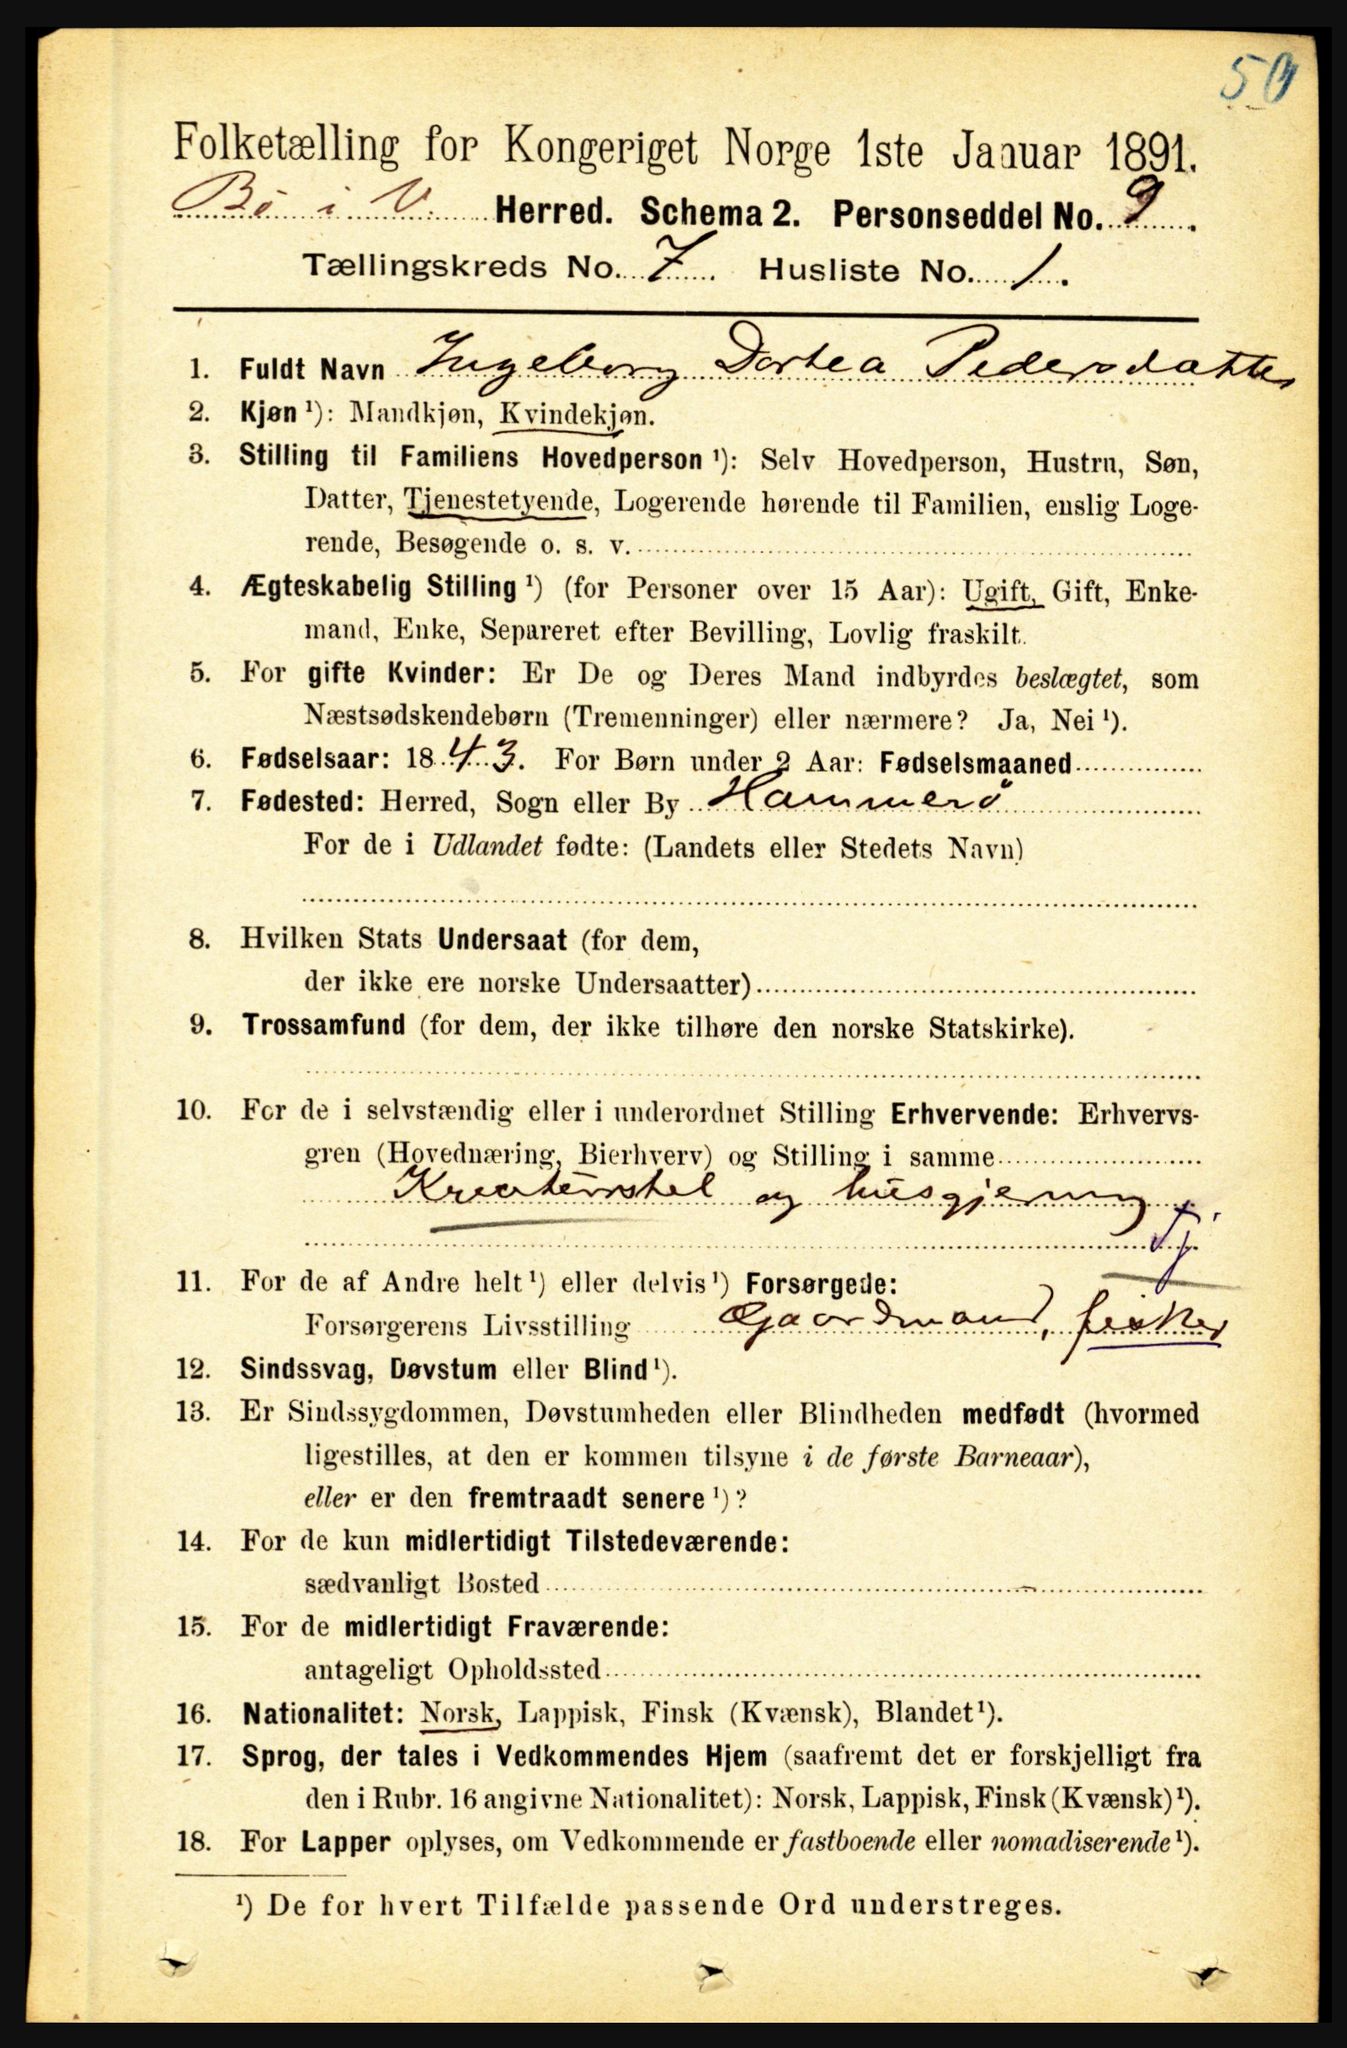 50
Folketælling for Kongeriget Norge 1ste Januar 1891.
Bø i V. Herred. Schema 2. Personseddel No. 9.
Tællingskreds No. 7. Husliste No. 1.
1. Fuldt Navn Ingeborg Dortea Pedersdatter
2. Kjøn ¹): Mandkjøn, Kvindekjøn.
3. Stilling til Familiens Hovedperson ¹): Selv Hovedperson, Hustru, Søn,
Datter, Tjenestetyende, Logerende hørende til Familien, enslig Loge-
rende, Besøgende o. s. v.
4. Ægteskabelig Stilling ¹) (for Personer over 15 Aar): Ugift, Gift, Enke-
mand, Enke, Separeret efter Bevilling, Lovlig fraskilt.
5. For gifte Kvinder: Er De og Deres Mand indbyrdes beslægtet, som
Næstsødskendebørn (Tremenninger) eller nærmere? Ja, Nei ¹).
6. Fødselsaar: 1843. For Børn under 2 Aar: Fødselsmaaned
7. Fødested: Herred, Sogn eller By Hammerø
For de i Udlandet fødte: (Landets eller Stedets Navn)
8. Hvilken Stats Undersaat (for dem,
der ikke ere norske Undersaatter)
9. Trossamfund (for dem, der ikke tilhøre den norske Statskirke).
10. For de i selvstændig eller i underordnet Stilling Erhvervende: Erhvervs-
gren (Hovednæring, Bierhverv) og Stilling i samme
Kreaturstel og husgjerning
Tj
11. For de af Andre helt ¹) eller delvis ¹) Forsørgede:
Forsørgerens Livsstilling Gaardmand, fisker
12. Sindssvag, Døvstum eller Blind ¹).
13. Er Sindssygdommen, Døvstumheden eller Blindheden medfødt (hvormed
ligestilles, at den er kommen tilsyne i de første Barneaar),
eller er den fremtraadt senere ¹)?
14. For de kun midlertidigt Tilstedeværende:
sædvanligt Bosted
15. For de midlertidigt Fraværende:
antageligt Opholdssted
16. Nationalitet: Norsk, Lappisk, Finsk (Kvænsk), Blandet ¹).
17. Sprog, der tales i Vedkommendes Hjem (saafremt det er forskjelligt fra
den i Rubr. 16 angivne Nationalitet): Norsk, Lappisk, Finsk (Kvænsk) ¹).
18. For Lapper oplyses, om Vedkommende er fastboende eller nomadiserende ¹).
¹) De for hvert Tilfælde passende Ord understreges.